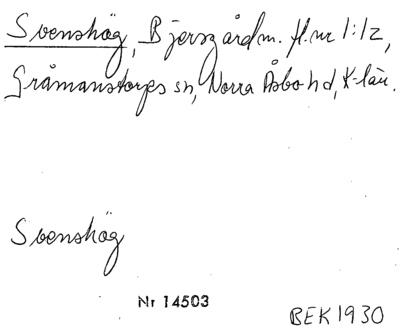 Svenshög, Bjersgård m. fl. nr 1:12,
Gråmanstorps sn, Norra Åsbo hd, K-län.
Svenshög
Nr 14503
BEK 1930